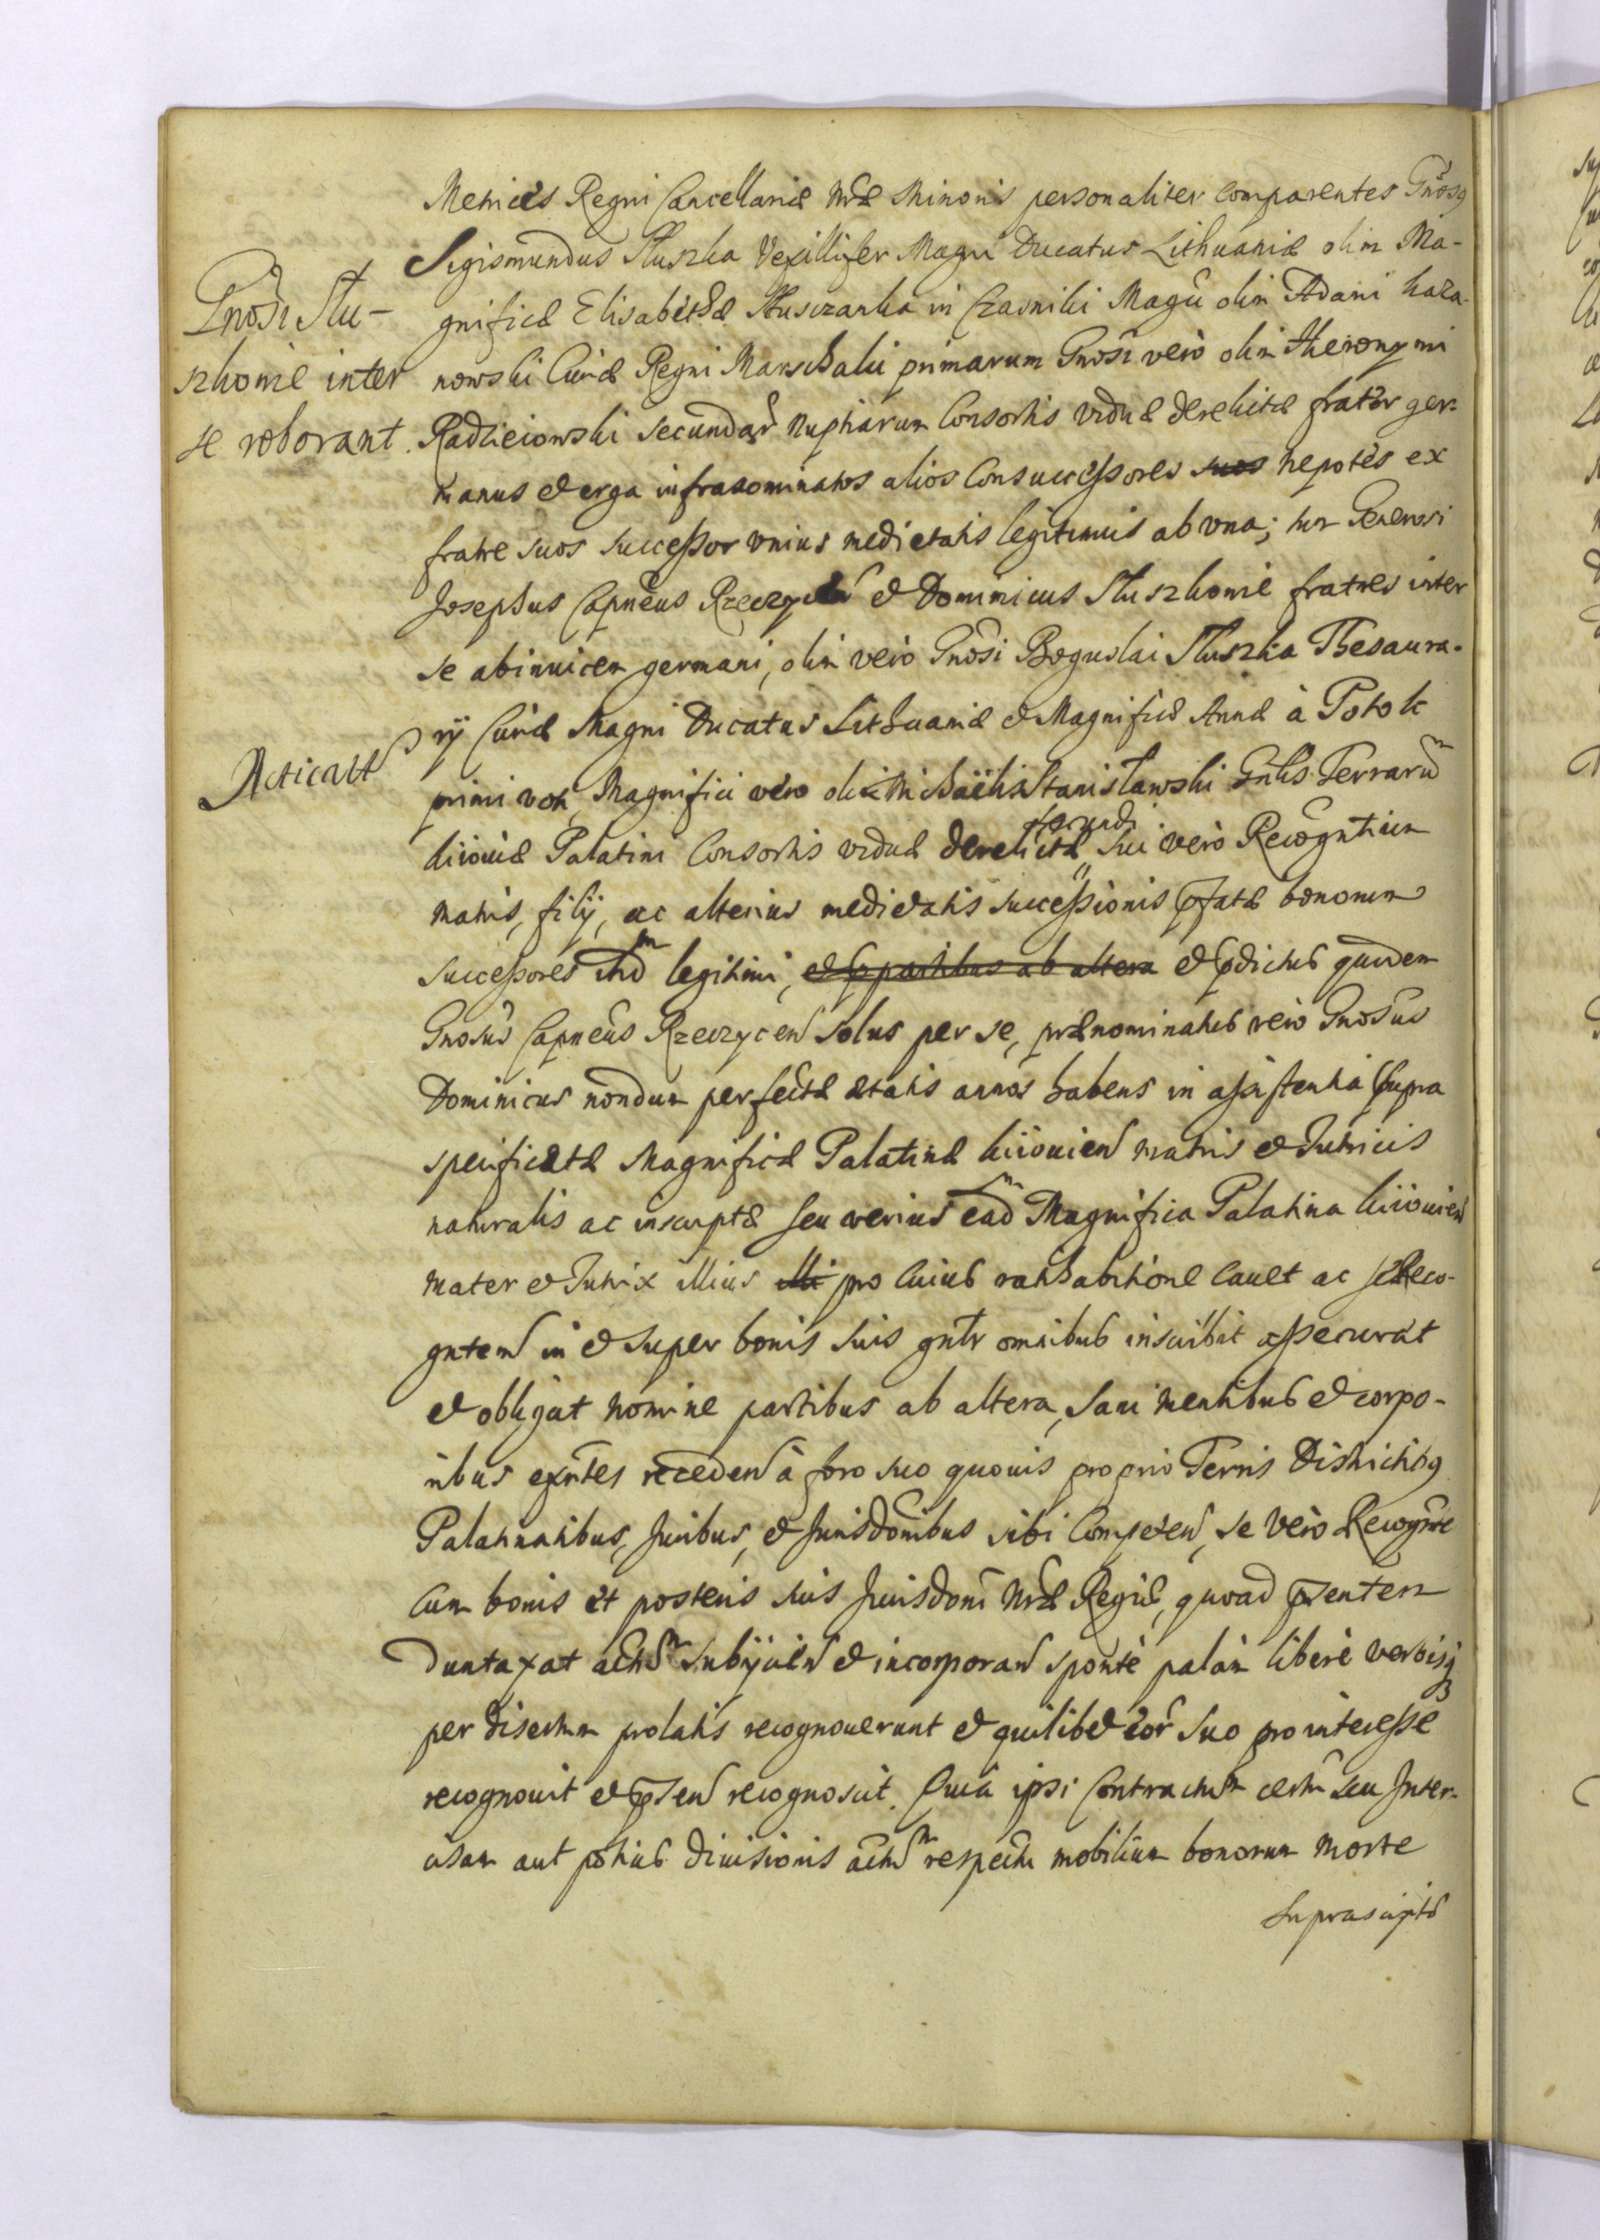 Metrices Regni Cancellariæ nræ Minoris personaliter comparentes Gnosq
Sigismundus Sluszka Vexillifer Magni Ducatus Lithuaniæ olim Ma-
Gnosi Slu-
gnificæ Elisabethæ Sluszczanka in Czasniki Magci olim Adani Kaza-
szkowie inter
nowski Curiæ Regni Marschalci primarum Gnosi verò olim Hieronymi
se roborant.
Radzieiowski secundar nuptiarum Consortis viduæ derelictæ frater ger-
manus et erga infranominatos alios Consuccessores suos nepotes ex
fratre suos successor vnius medietatis legitimus ab vna; tum Generosi
Josephus Capneus Rzeczycen et Dominicus Sluszkowie fratres inter
se abinuicem germani, olim verò Gnosi Boguslai Sluszka Thesaura-
rij Curiæ Magni Ducatus Lithuaniæ et Magnificæ Annæ à Potok
Acticatt
primi voti, Magnifici vero olim Michaëlis Stanislawski Gnlis Terrarum
secundi
Kiiouiæ Palatini Consortis viduæ derelictæ, sui verò Recogntium
matris, filij, ac alterius medietatis successionis pfatæ bonorum
successores itid legitimi, et partibus ab altera et pdictus quidem
Gnosus Capneus Rzeczycen solus per se, prænominatus verò Gnosus
Dominicus nondum perfectæ ætatis annos habens in assistentia supra
specificatæ Magnificæ Palatinæ Kiiouien matris et Tutricis
naturalis ac inscriptæ seu verius ead Magnifica Palatina Kiiouien
mater et Tutrix illius illi pro cuius ratihabitione cauet ac se Reco-
gntem in et super bonis suis gnlr omnibus inscribit assecurat
et obligat nomine partibus ab altera, sani mentibus et corpo-
ribus exntes receden à foro suo quouis proprio Terris Districtibq
Palatinatibus, Juribus, et Jurisdonibus sibi Competen, se verò Recognte
cum bonis et posteris suis Jurisdoni Nræ Regiæ, quoad pntem
duntaxat actum subijcien et incorporan sponte palàm liberè verbisq
per disertum prolatis recognouerunt et quilibet eor suo pro interesse
recognouit et psen recognoscit. Quia ipsi Contractum certu seu Inter-
cisam aut potius diuisionis actum respectu mobilium bonorum morte
suprascriptæ